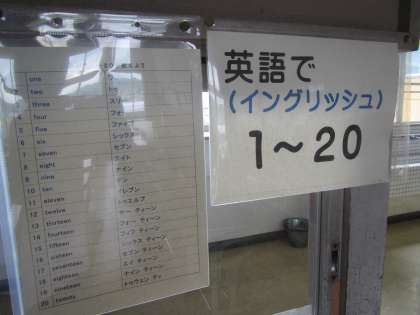 one
2 two トゥ
3 three スリ
4 four フォ
5 five ファイブ
6 six シックス
7 seven セブン
8 eight エイト
9 nine ナイン
10 ten テン
11 eleven イレブン
12 twelve トゥエルブ
13 thirteen サー ティーン
14 fourteen フォー ティーン
15 fifteen フィフ ティーン
16 sixteen シックス ティーン
17 seventeen セブン ティーン
18 eighteen エイ ティーン
19 nineteen ナイン ティーン
20 twenty トゥウェン ティ
英語で
(イングリッシュ)
1～20